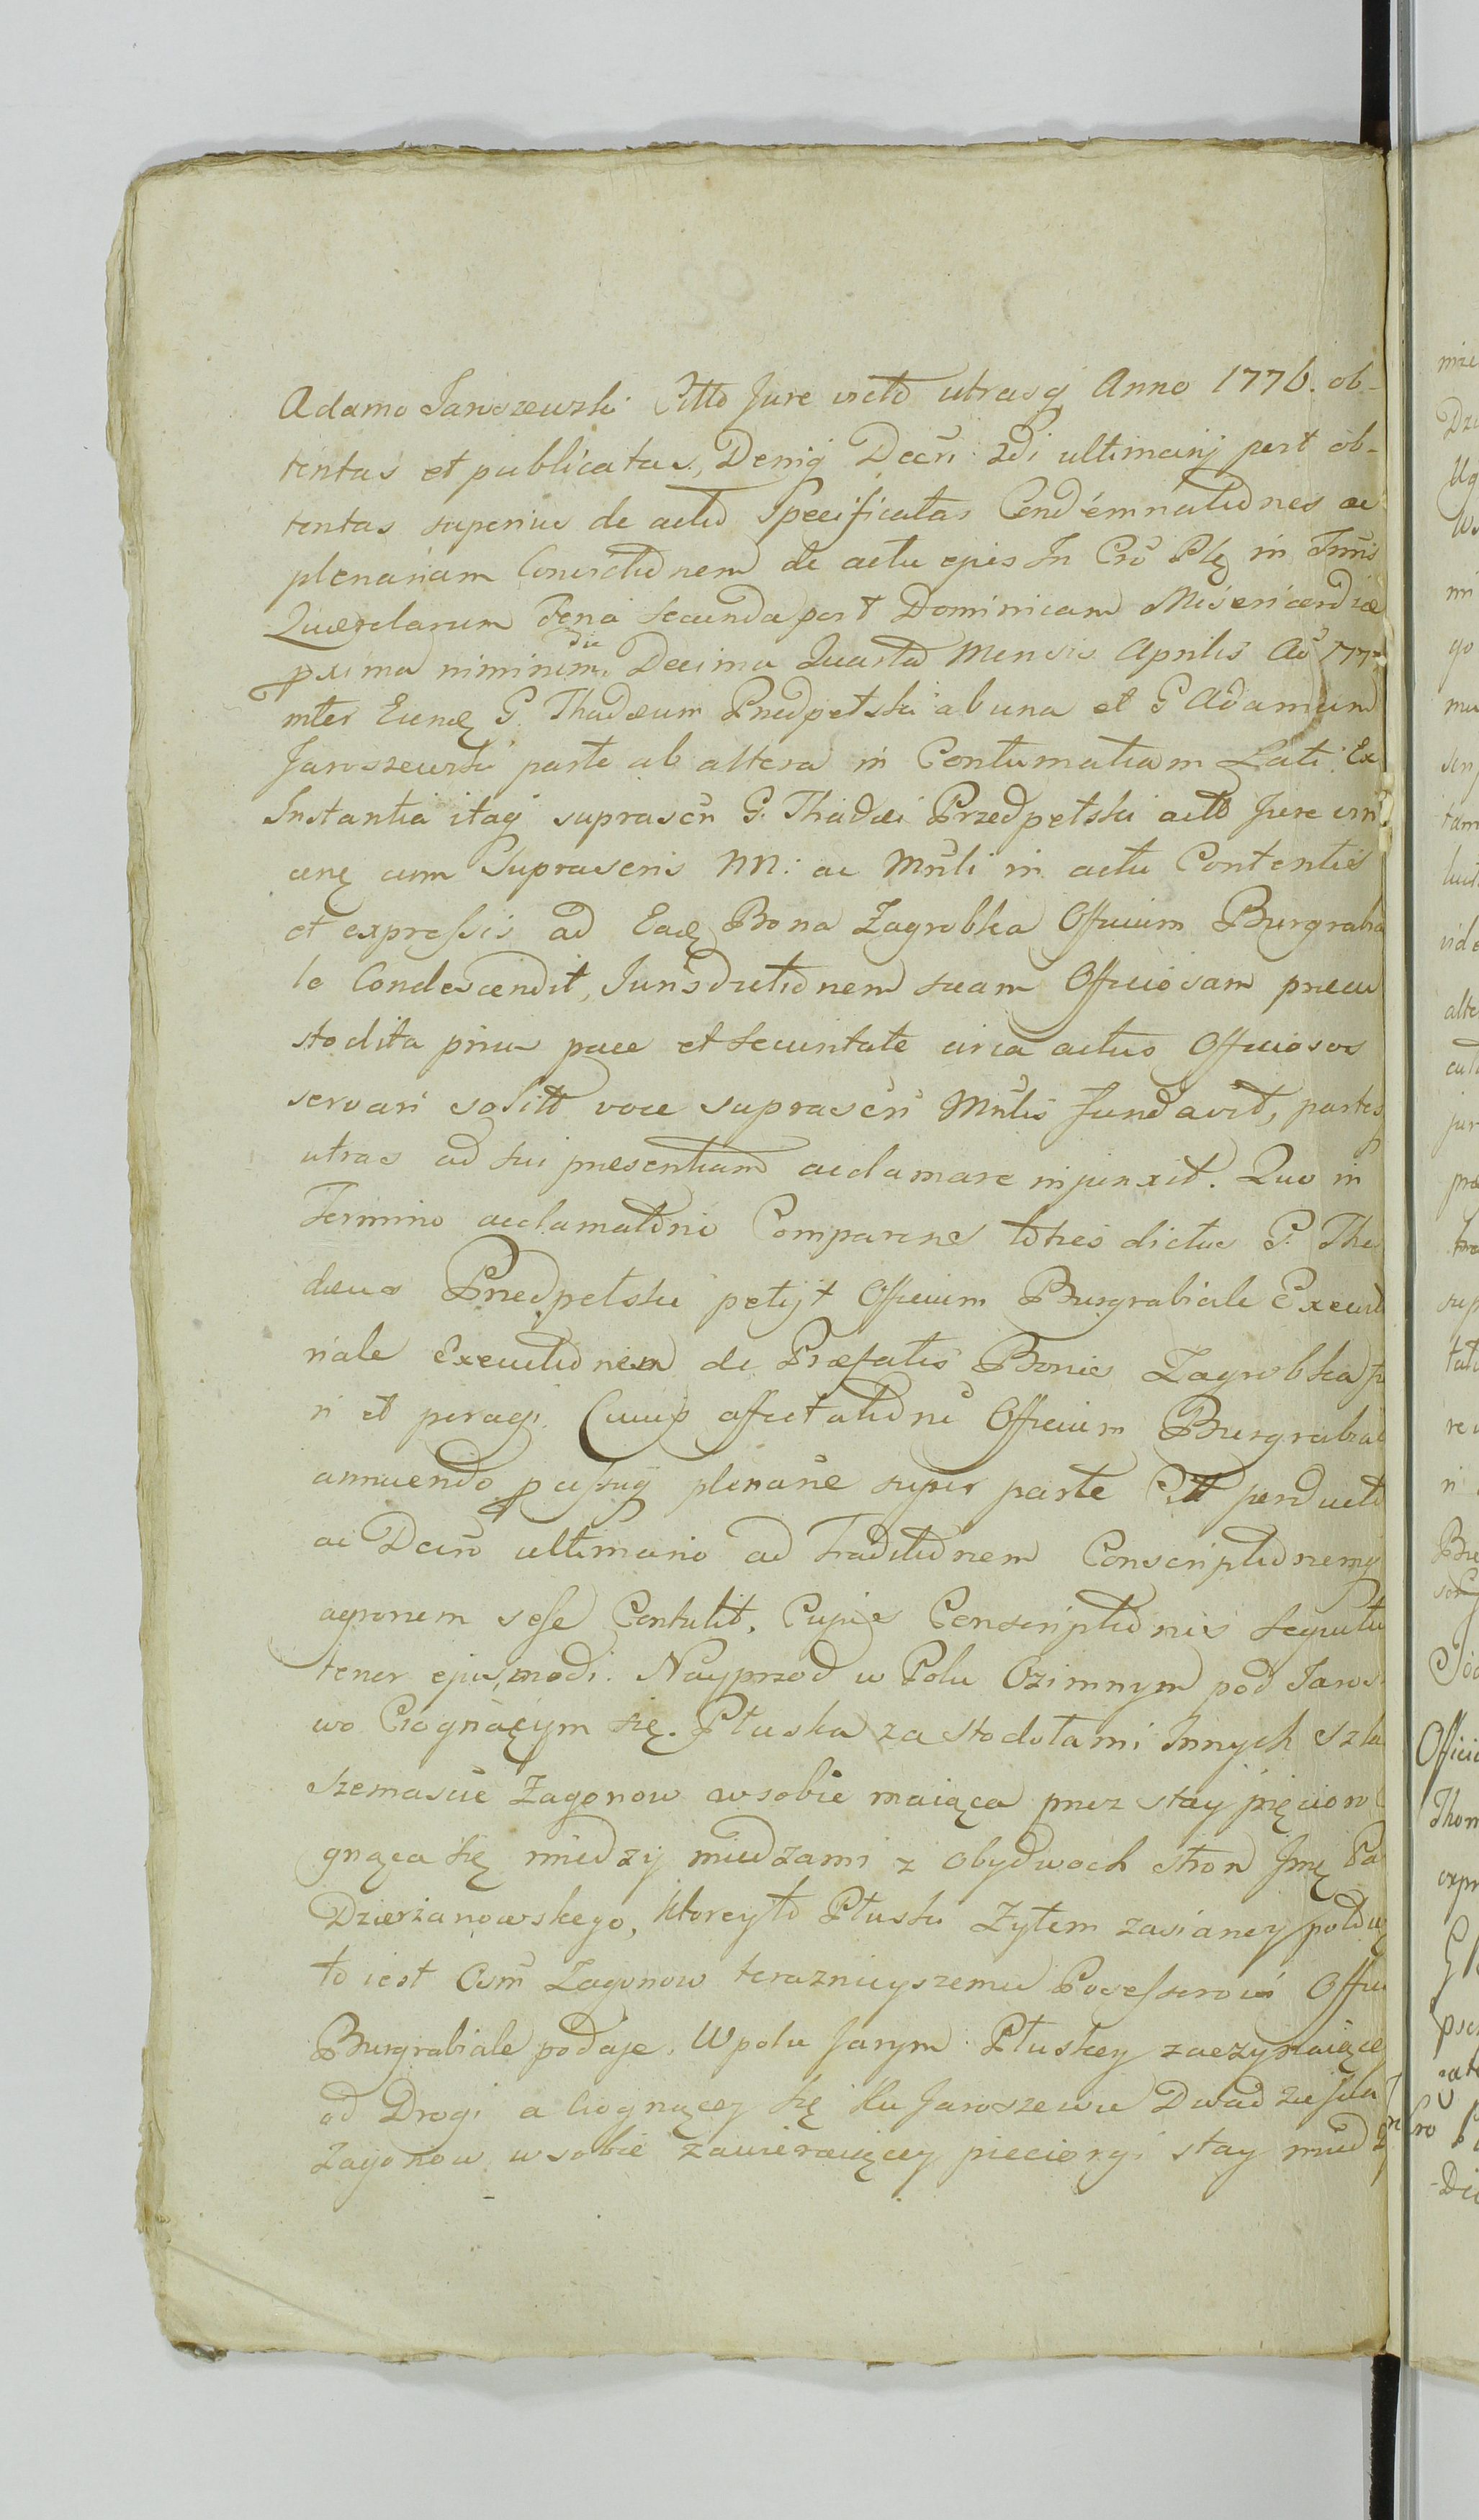 Adamo Jaroszewski Citto Jure victo utrasq Anno 1776. ob-
tentas et publicatas, Deniq Decri 2di ultimarij pert ob-
tentas superius de actu Specificatas Condemnationes ac
plenariam Convictionem de actu ejus In Cro Plę in Tmis
Querelarum Feria Secunda post Dominicam Misericordiæ
pxima nimirum die Decima Quarta Mensis Aprilis Ao 177
inter Eundę G. Thadæum Przedpełski ab una et G Adamum
Jaroszewski parte ab altera in Contumatiam Lati Ex
Instantia itaq suprascri G. Thadæi Przedpełski acto Jure vin
cenę cum Suprascris NN: ac Mnli in actu Contentis
et expressis ad Eadę Bona Zagrobka Officium Burgrabia
le Condescendit, Jurisdictionem suam Officiosam præcu
stodita prius pace et securitate circa actus Officiosos
servari solitt voce suprascri Mnlis fundavit, partes
utras ad sui presentiam acclamare injunxit. Quo in
Termino acclamationis Comparens toties dictus G. Tha
dæus Przedpełski petijt Officium Burgrabiale Executo
riale Executionem de Præfatis Bonis Zagrobka fi
ri et peragi. Cuius affectationi Officium Burgrabial
annuendo passuq plenarie super parte Citt perducto
ac Decro ultimario ad Traditionem Conscriptionemq
agrorum sese Contulit, Cujus Conscriptionis Sequitu
tenor ejusmodi. Nayprzod w Polu Ozimnym pod Jaros
wo Ciągnącym się. Płuska za stodołami Innych Szla
Szesnascie Zagonow w sobie maiąca przez stay pięcioro
gnąca się miedzy miedzami z obydwoch stron Jmę Pa
Dzierżanowskiego, ktoreyto Płuski Zytem zasianey połow
to iest Osm Zagonow teraznieyszemu Possessorowi Offic
Burgrabiale podaje. W polu Jarym Płuskę zaczynaiącę
od Drogi a ciągnącey się ku Jaroszewu Dwadziescia
Zagonow w sobie zawieraiącey pieciorgi stay mied